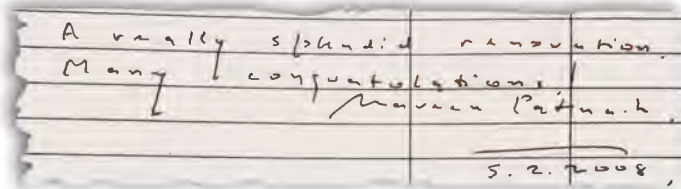 A really splendid renovation.
Many congratulations!
Naveen Patnaik.
5.2.2008.